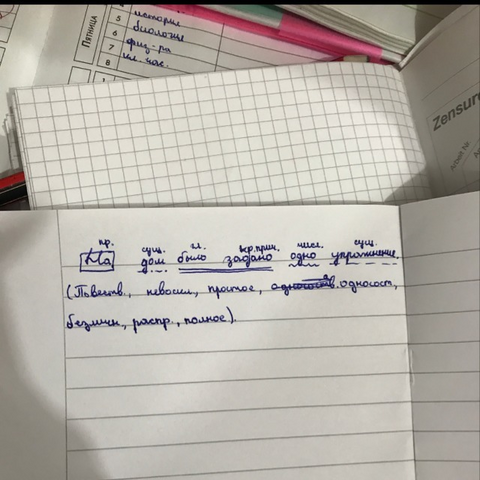 ПЯТНИЦА
5 история
6 биология
7 физ-ра
8 кл. час.
Zensur
пр. сущ. гл. кр.прич. числ. сущ.
На дом было задано одно упражнение.
(Повеств., невоскл., простое, односост,
безличн., распр., полное).